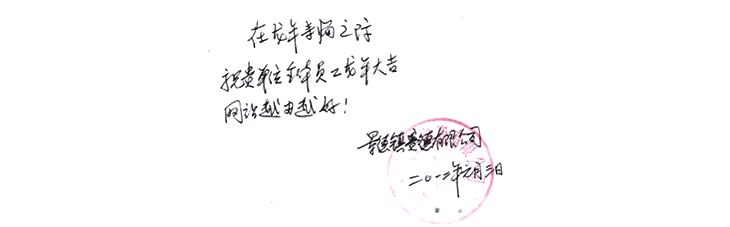 在龙年来临之际
祝贵单位全体员工龙年大吉
网站越办越好!
景德镇爱德有限公司
二〇一二年元月三日